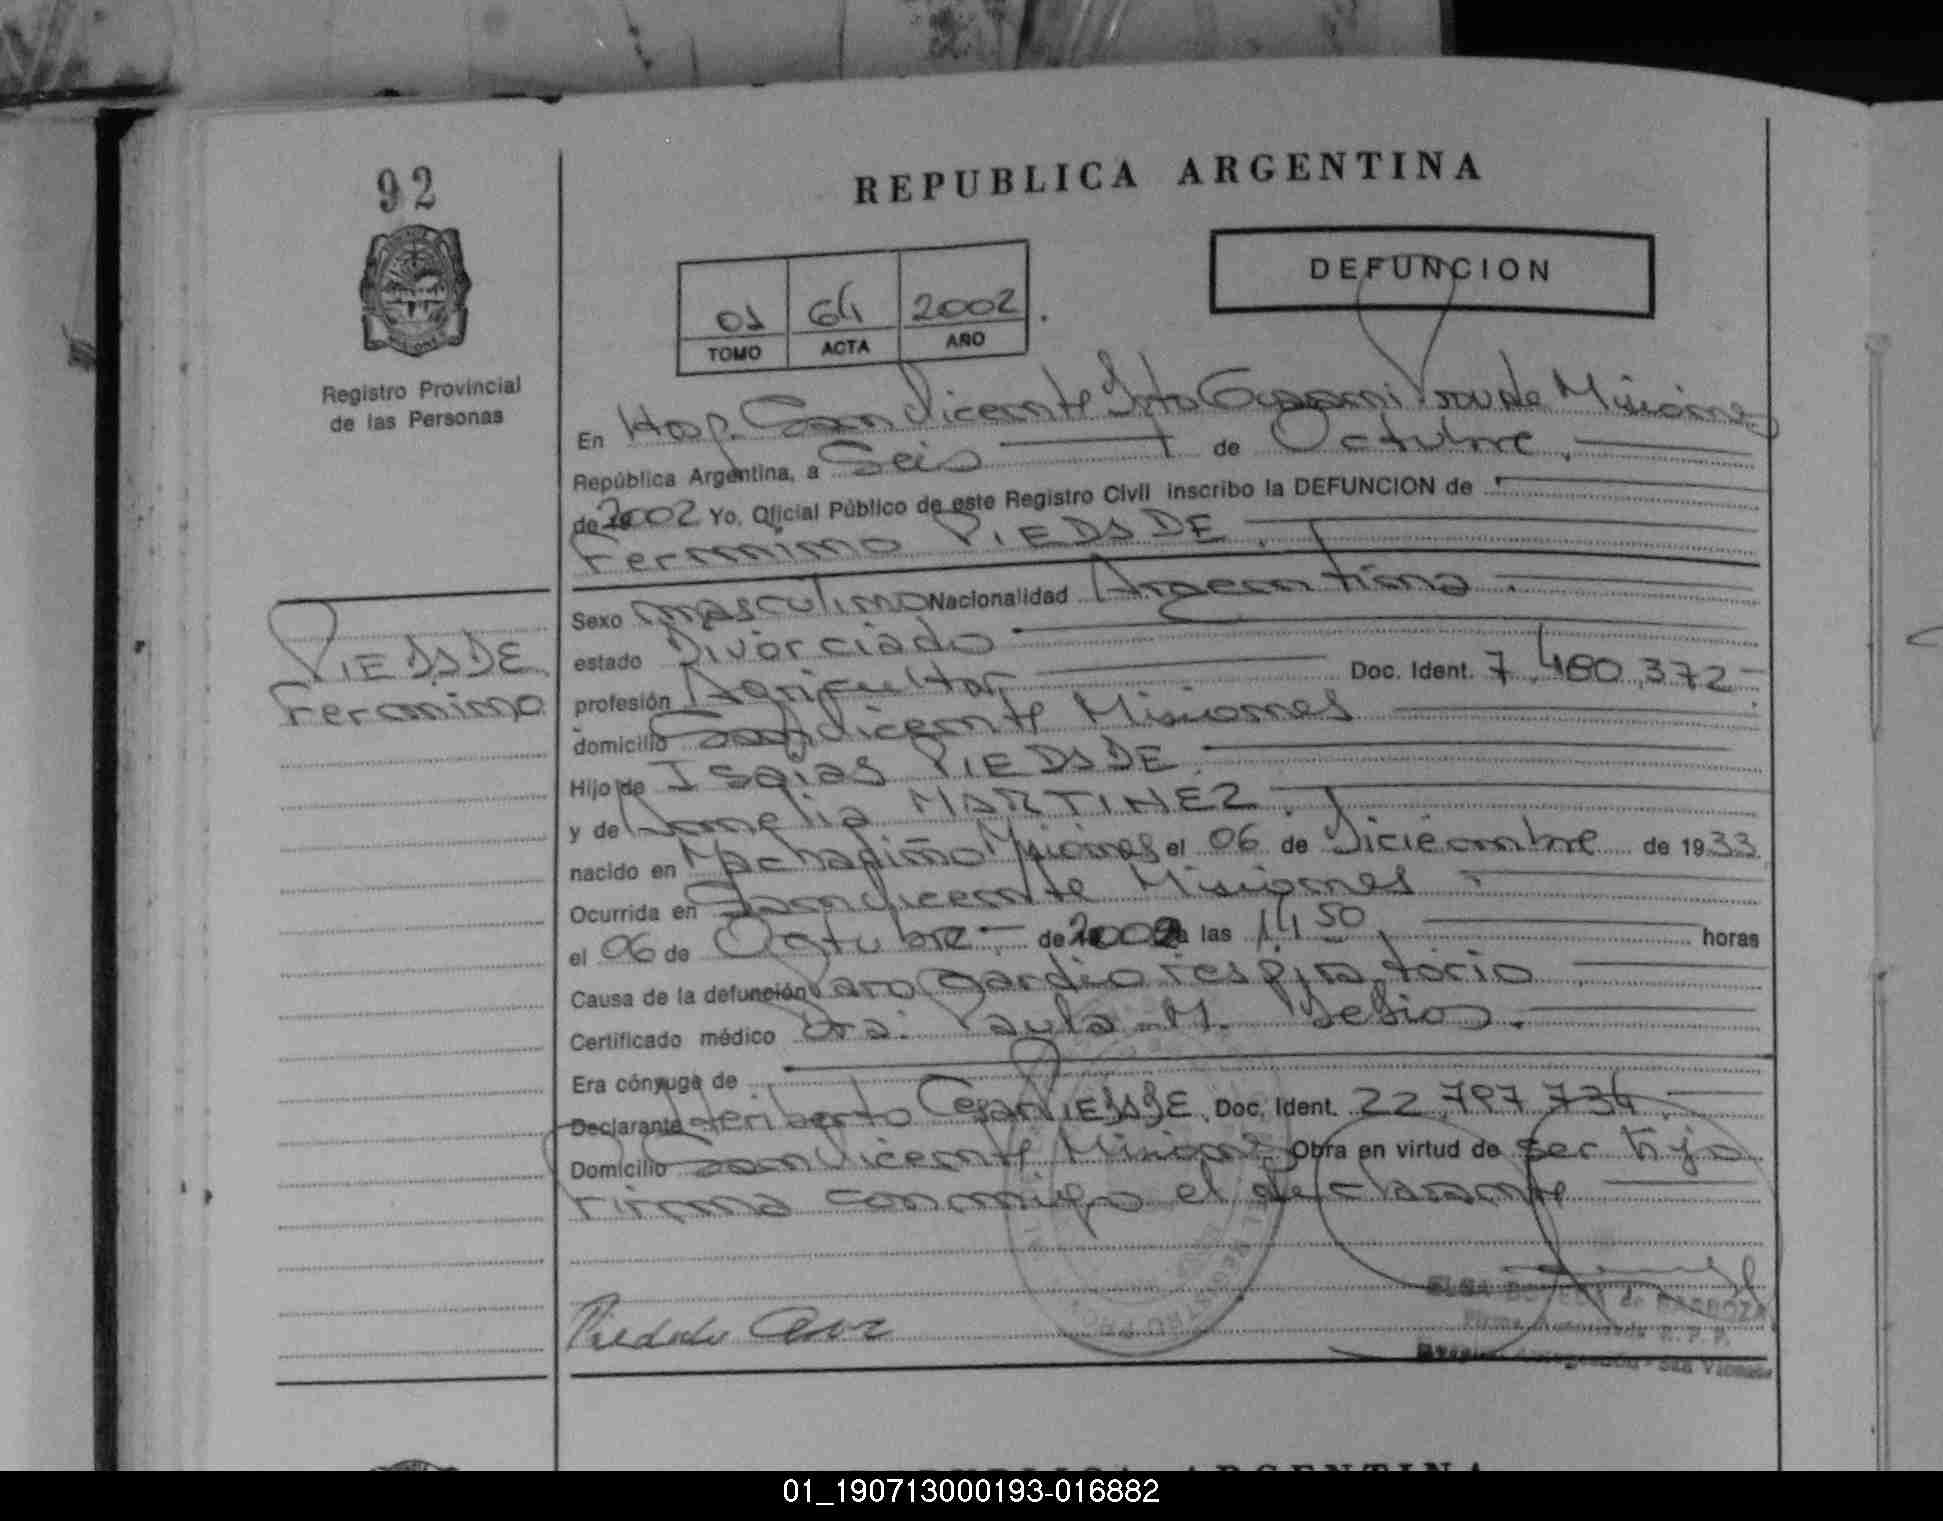 92
REPUBLICA ARGENTINA
DEFUNCION
01 64 2002
TOMO ACTA AÑO
Registro Provincial
de las Personas
En Hosp. San Vicente Dpto Guaraní Prov de Misiones
República Argentina, a Seis de Octubre
de 2002 Yo, Oficial Público de este Registro Civil inscribo la DEFUNCION de
PIEDADE
Sexo masculino Nacionalidad Argentina
estado Divorciado
PIEDADE
Feronimo
profesión Agricultor Doc. Ident. 7.480.372
domicilio San Vicente Misiones
Hijo de Isaias PIEDADE
y de MARTINEZ
nacido en Misiones el 06 de Diciembre de 1933
Ocurrida en San Vicente Misiones
el 06 de Octubre de 2002 a las 14 50 horas
Causa de la defunción Paro cardio respiratorio
Certificado médico Dra. Paula M.
Era cónyuge de
Declarante Heriberto Cesar PIEDADE. Doc. Ident. 22.797.734
Domicilio San Vicente Misiones Obra en virtud de ser hijo
Firma conmigo el declarante
Piedade
ELSA de BARBOZA
Firma Autorizada R. P. P.
San Vicente
REPUBLICA ARGENTINA
01_190713000193-016882